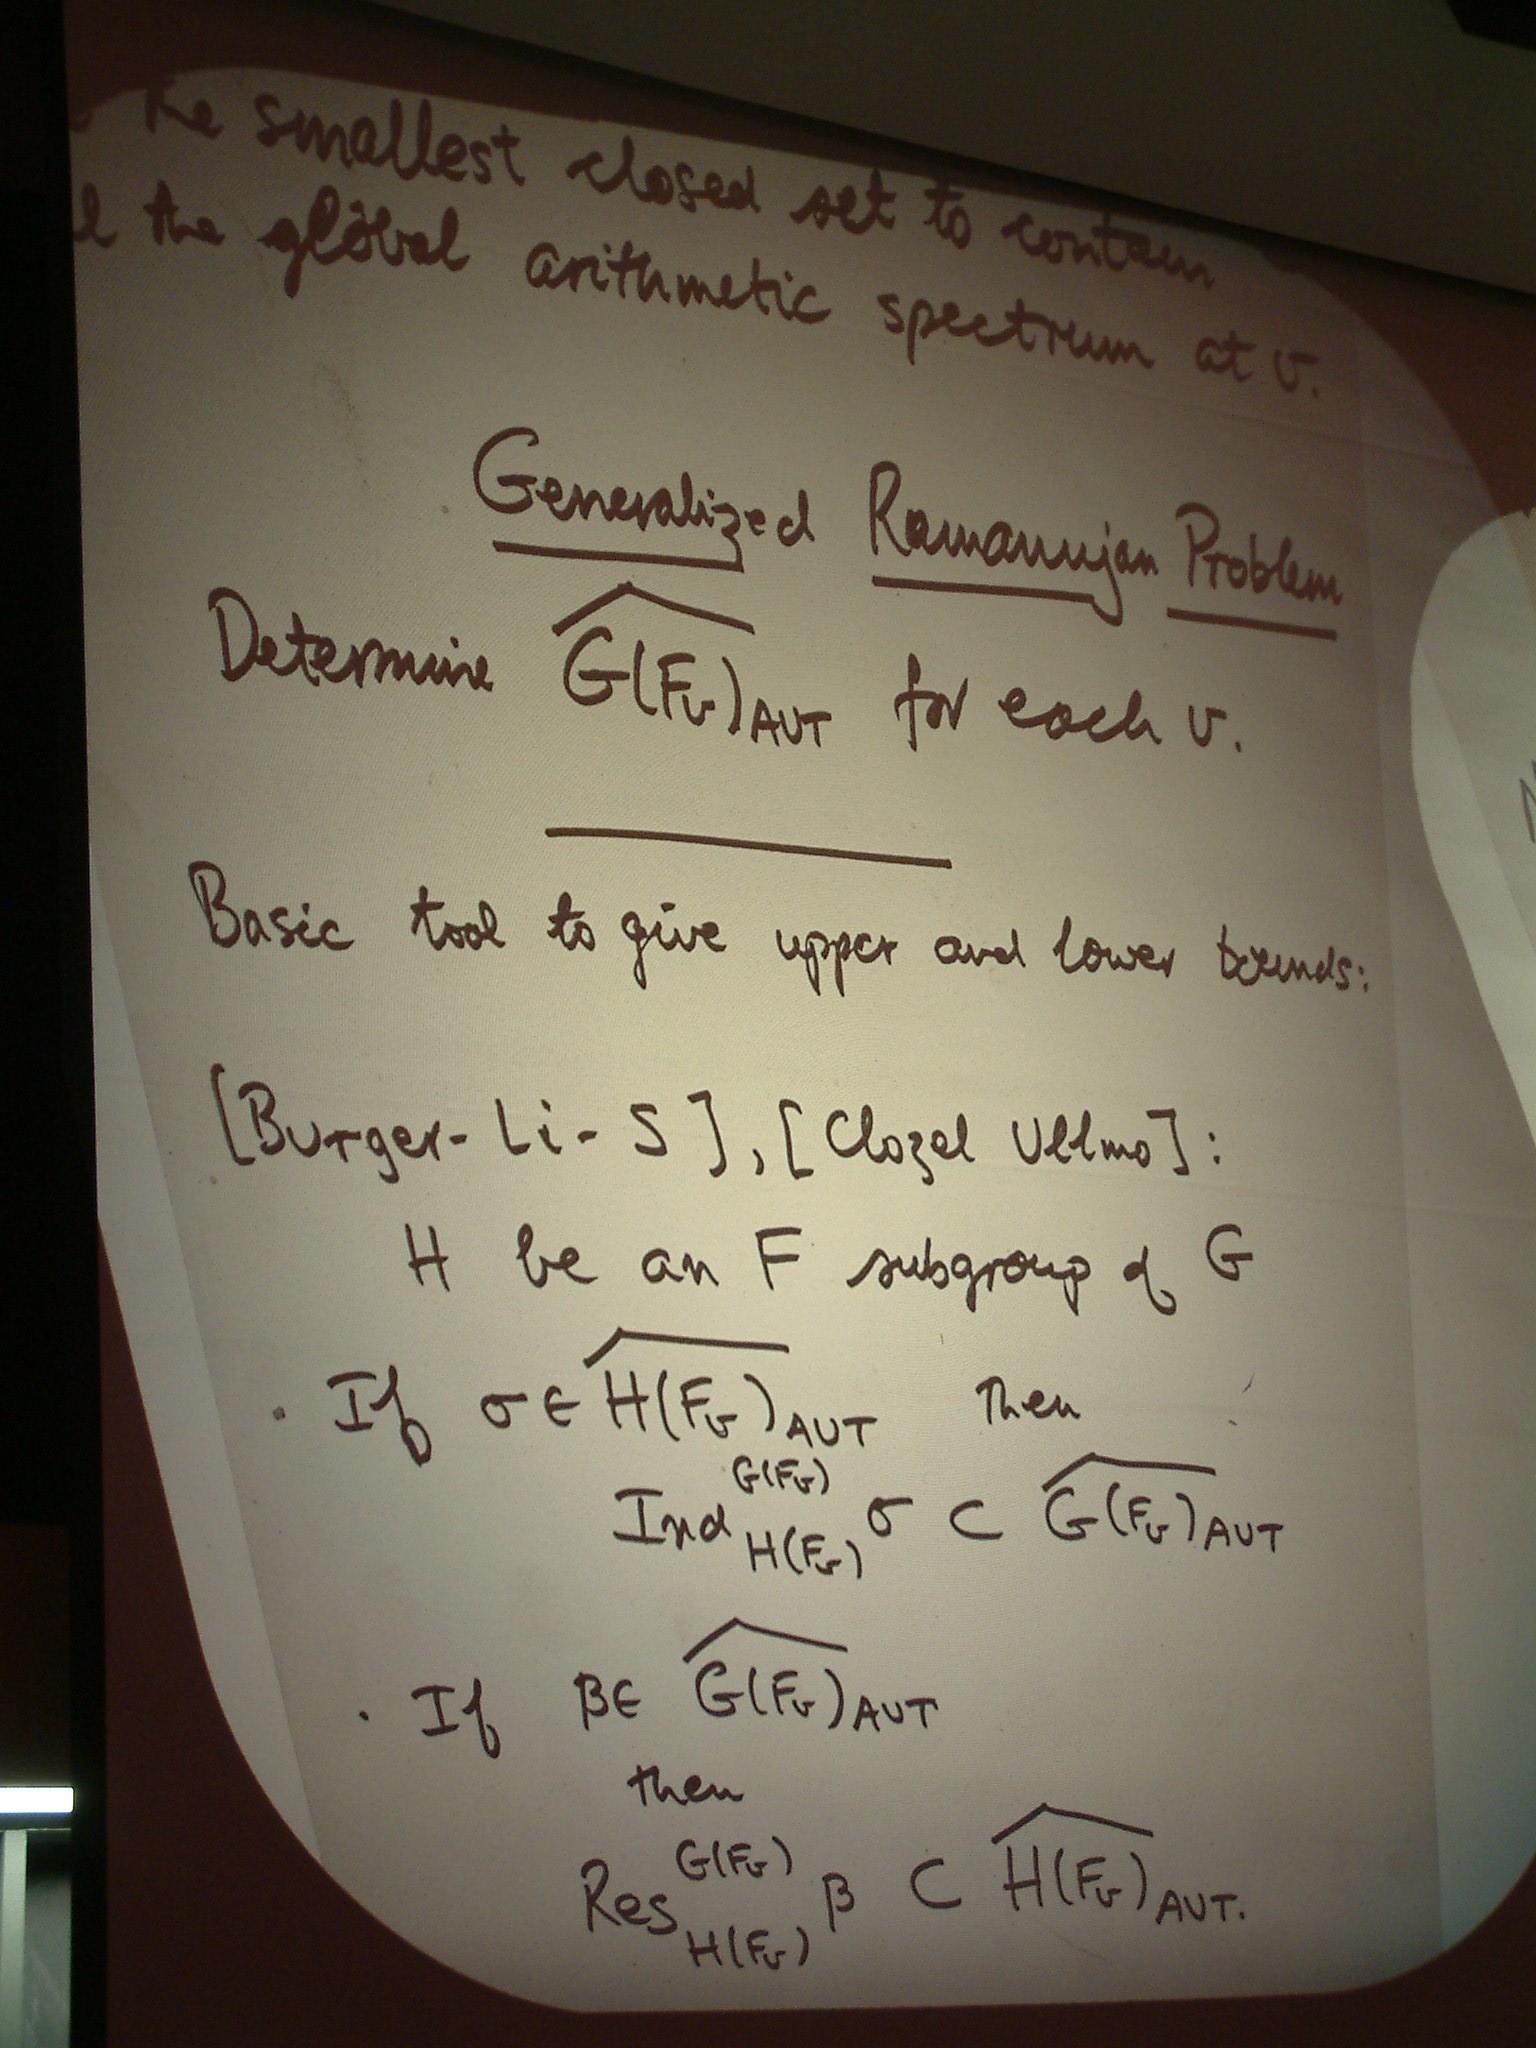 the smallest closed set to contain
the global arithmetic spectrum at v.
Generalized Ramanujan Problem
Determine \widehat{G(F_v)}_{AUT} for each v.
Basic tool to give upper and lower bounds:
[Burger-Li-S], [Clozel Ullmo]:
H be an F subgroup of G
· If σ ∈ \widehat{H(F_v)}_{AUT} Then
Ind_{H(F_v)}^{G(F_v)} σ ⊂ \widehat{G(F_v)}_{AUT}
· If β ∈ \widehat{G(F_v)}_{AUT}
then
Res_{H(F_v)}^{G(F_v)} β ⊂ \widehat{H(F_v)}_{AUT}.